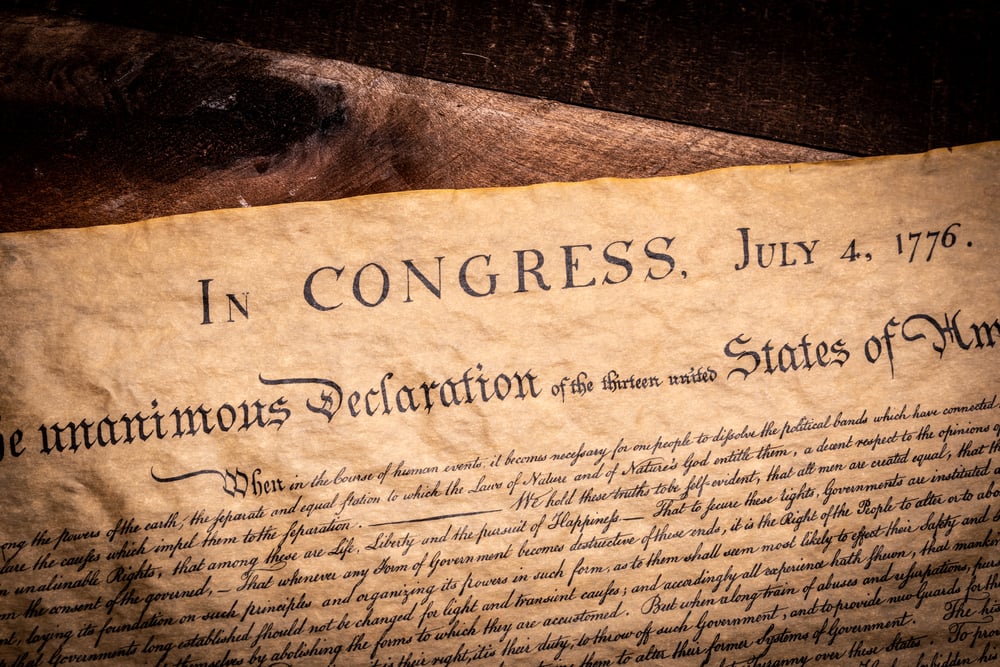 In CONGRESS, July 4, 1776.
e unanimous Declaration of the thirteen united States of Am
When in the Course of human events, it becomes necessary for one people to dissolve the political bands which have connected
ong the powers of the earth, the separate and equal station to which the Laws of Nature and of Nature's God entitle them, a decent respect to the opinions o
are the causes which impel them to the separation. We hold these truths to be self-evident, that all men are created equal, that th
n unalienable Rights, that among these are Life, Liberty and the pursuit of Happiness.— That to secure these rights, Governments are instituted a
m the consent of the governed, — That whenever any Form of Government becomes destructive of these ends, it is the Right of the People to alter or to abo
nt, laying its foundation on such principles and organizing its powers in such form, as to them shall seem most likely to effect their Safety and
that Governments long established should not be changed for light and transient causes; and accordingly all experience hath shewn, that mankin
themselves by abolishing the forms to which they are accustomed. But when a long train of abuses and usurpations, pur
it is their right, it is their duty, to throw off such Government, and to provide new Guards for th
them to alter their former Systems of Government. The his
Tyranny over these States. To prov